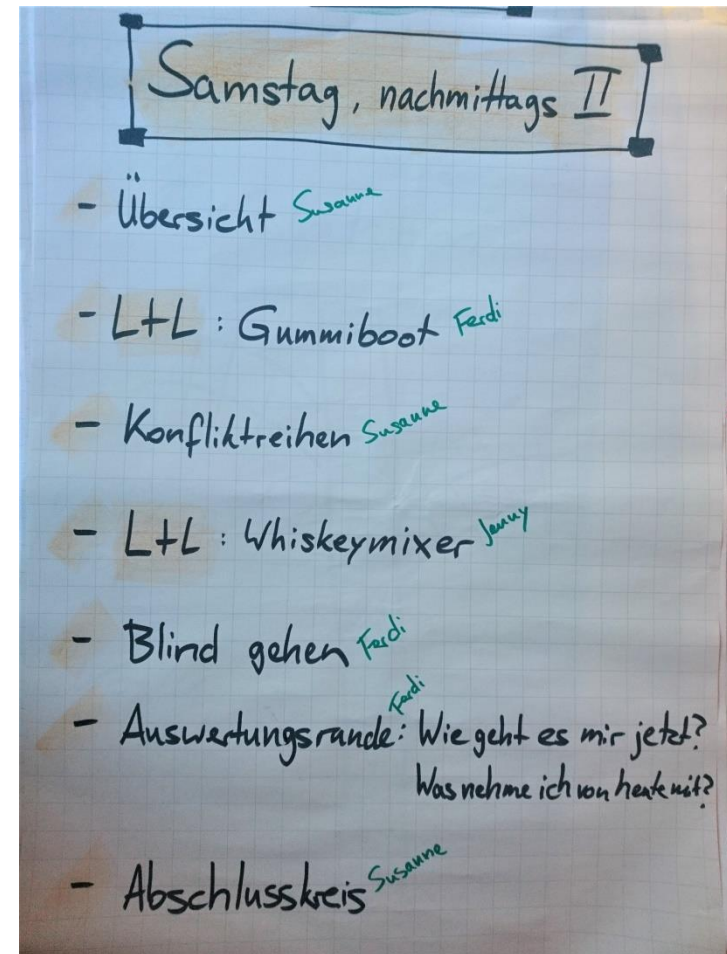 Samstag, nachmittags II
- Übersicht Susanne
- L+L : Gummiboot Ferdi
- Konfliktreihen Susanne
- L+L : Whiskeymixer Jenny
- Blind gehen Ferdi
- Auswertungsrunde: Ferdi Wie geht es mir jetzt?
Was nehme ich von heute mit?
- Abschlusskreis Susanne